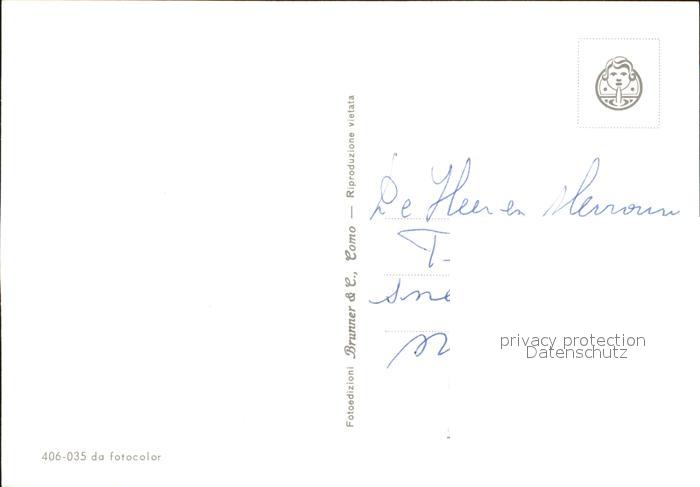 Fotoedizioni Brunner & C., Como — Riproduzione vietata
De Heer en Mevrouw
T.
sne
privacy protection
Datenschutz
406-035 da fotocolor